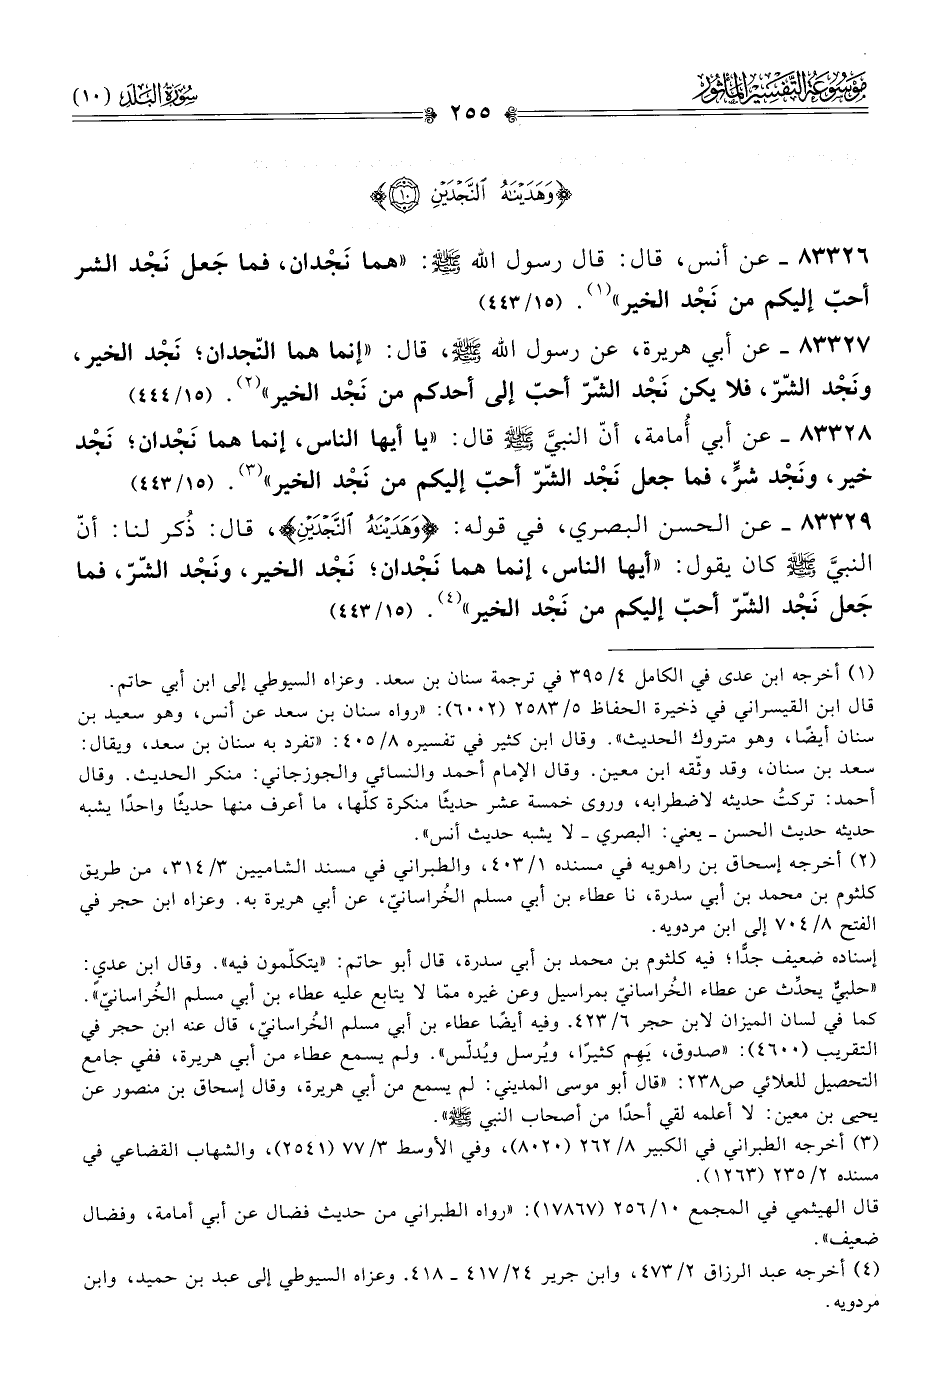 موسوعة التفسير المأثور
سورة البلد (١٠)
٢٥٥
﴿وَهَدَيْنَاهُ النَّجْدَيْنِ ١٠﴾
٨٣٣٢٦ - عن أنس، قال: قال رسول الله ﷺ: «هما نَجْدان، فما جَعل نَجْد الشر
أحبّ إليكم من نَجْد الخير»(١). (٤٤٣/١٥)
٨٣٣٢٧ - عن أبي هريرة، عن رسول الله ﷺ، قال: «إنما هما النّجدان؛ نَجْد الخير،
ونَجْد الشّرّ، فلا يكن نَجْد الشّرّ أحبّ إلى أحدكم من نَجْد الخير»(٢). (٤٤٤/١٥)
٨٣٣٢٨ - عن أبي أُمامة، أنّ النبيَّ ﷺ قال: «يا أيها الناس، إنما هما نَجْدان؛ نَجْد
خير، ونَجْد شرٍّ، فما جعل نَجْد الشّرّ أحبّ إليكم من نَجْد الخير»(٣). (٤٤٣/١٥)
٨٣٣٢٩ - عن الحسن البصري، في قوله: ﴿وَهَدَيْنَاهُ النَّجْدَيْنِ﴾، قال: ذُكر لنا: أنّ
النبيَّ ﷺ كان يقول: «أيها الناس، إنما هما نَجْدان؛ نَجْد الخير، ونَجْد الشّرّ، فما
جَعل نَجْد الشّرّ أحبّ إليكم من نَجْد الخير»(٤). (٤٤٣/١٥)
(١) أخرجه ابن عدى في الكامل ٤/ ٣٩٥ في ترجمة سنان بن سعد. وعزاه السيوطي إلى ابن أبي حاتم.
قال ابن القيسراني في ذخيرة الحفاظ ٥/ ٢٥٨٣ (٦٠٠٢): «رواه سنان بن سعد عن أنس، وهو سعيد بن
سنان أيضًا، وهو متروك الحديث». وقال ابن كثير في تفسيره ٨/ ٤٠٥: «تفرد به سنان بن سعد، ويقال:
سعد بن سنان، وقد وثّقه ابن معين. وقال الإمام أحمد والنسائي والجوزجاني: منكر الحديث. وقال
أحمد: تركتُ حديثه لاضطرابه، وروى خمسة عشر حديثًا منكرة كلّها، ما أعرف منها حديثًا واحدًا يشبه
حديثه حديث الحسن - يعني: البصري - لا يشبه حديث أنس».
(٢) أخرجه إسحاق بن راهويه في مسنده ١/ ٤٠٣، والطبراني في مسند الشاميين ٣/ ٣١٤، من طريق
كلثوم بن محمد بن أبي سدرة، نا عطاء بن أبي مسلم الخُراسانيّ، عن أبي هريرة به. وعزاه ابن حجر في
الفتح ٨/ ٧٠٤ إلى ابن مردويه.
إسناده ضعيف جدًّا؛ فيه كلثوم بن محمد بن أبي سدرة، قال أبو حاتم: «يتكلّمون فيه». وقال ابن عدي:
«حلبيٌّ يحدِّث عن عطاء الخُراسانيّ بمراسيل وعن غيره ممّا لا يتابع عليه عطاء بن أبي مسلم الخُراسانيّ».
كما في لسان الميزان لابن حجر ٦/ ٤٢٣. وفيه أيضًا عطاء بن أبي مسلم الخُراسانيّ، قال عنه ابن حجر في
التقريب (٤٦٠٠): «صدوق، يَهِم كثيرًا، ويُرسل ويُدلّس». ولم يسمع عطاء من أبي هريرة، ففي جامع
التحصيل للعلائي ص٢٣٨: «قال أبو موسى المديني: لم يسمع من أبي هريرة، وقال إسحاق بن منصور عن
يحيى بن معين: لا أعلمه لقي أحدًا من أصحاب النبي ﷺ».
(٣) أخرجه الطبراني في الكبير ٨/ ٢٦٢ (٨٠٢٠)، وفي الأوسط ٣/ ٧٧ (٢٥٤١)، والشهاب القضاعي في
مسنده ٢/ ٢٣٥ (١٢٦٣).
قال الهيثمي في المجمع ١٠/ ٢٥٦ (١٧٨٦٧): «رواه الطبراني من حديث فضال عن أبي أمامة، وفضال
ضعيف».
(٤) أخرجه عبد الرزاق ٢/ ٤٧٣، وابن جرير ٢٤/ ٤١٧ - ٤١٨. وعزاه السيوطي إلى عبد بن حميد، وابن
مردويه.